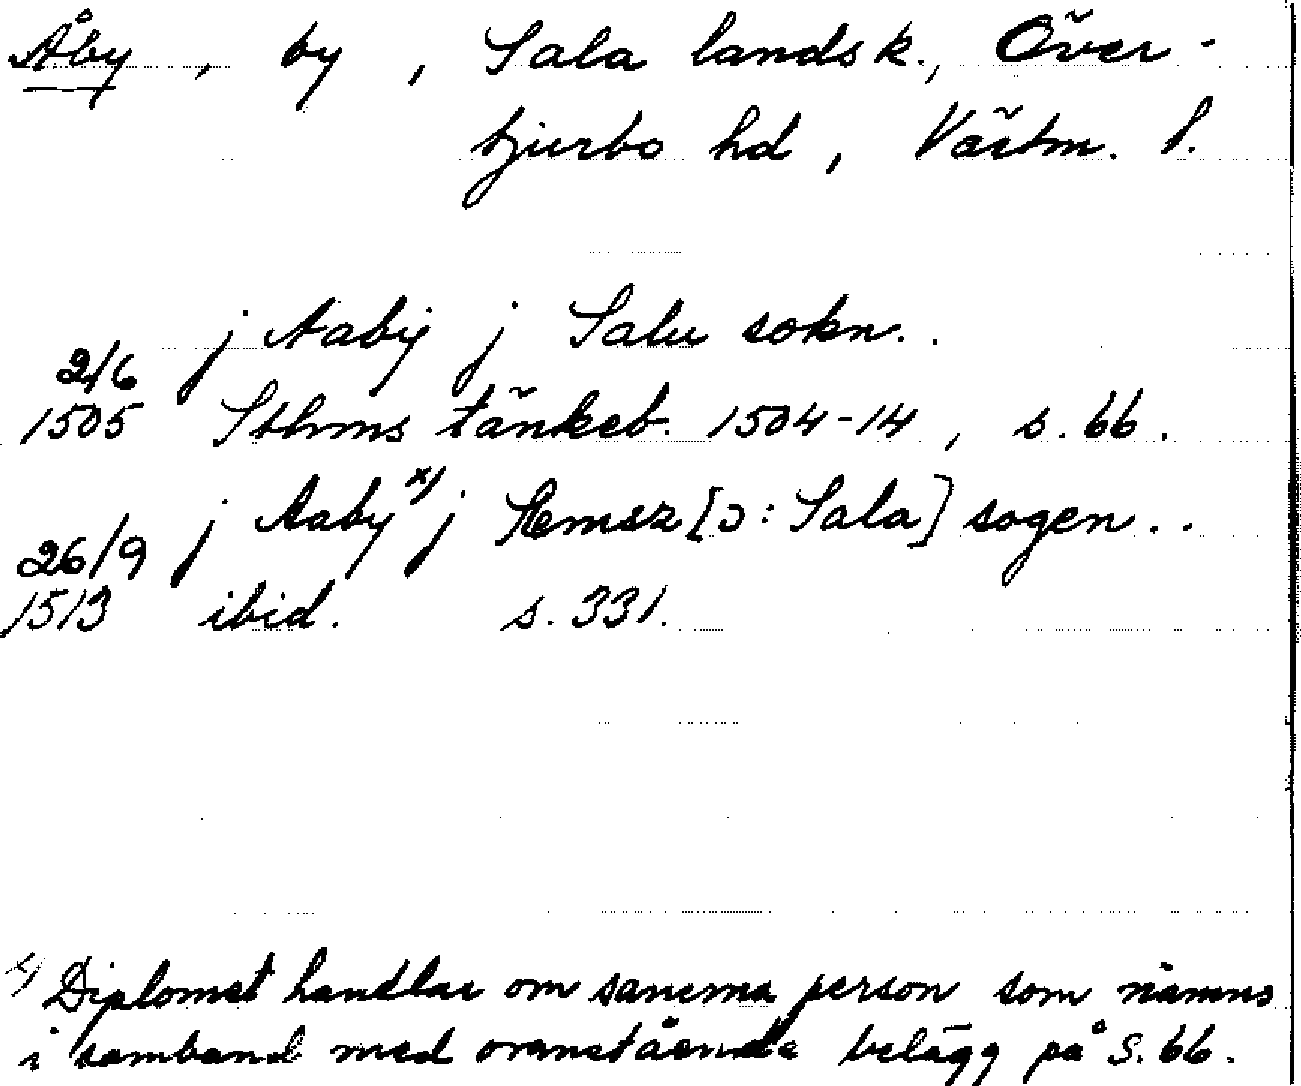 Åby, by, Sala landsk., Över-
tjurbo hd, Västm. l.
j Aaby j Salu sokn..
2/6
1505 Sthms tänkeb. 1504-14, s. 66.
j Aaby x) j Hemsz [ɔ: Sala] sogen..
26/9
1513 ibid. s. 331.
x) Diplomet handlar om samma person som nämns
i samband med ovanstående belägg på s. 66.